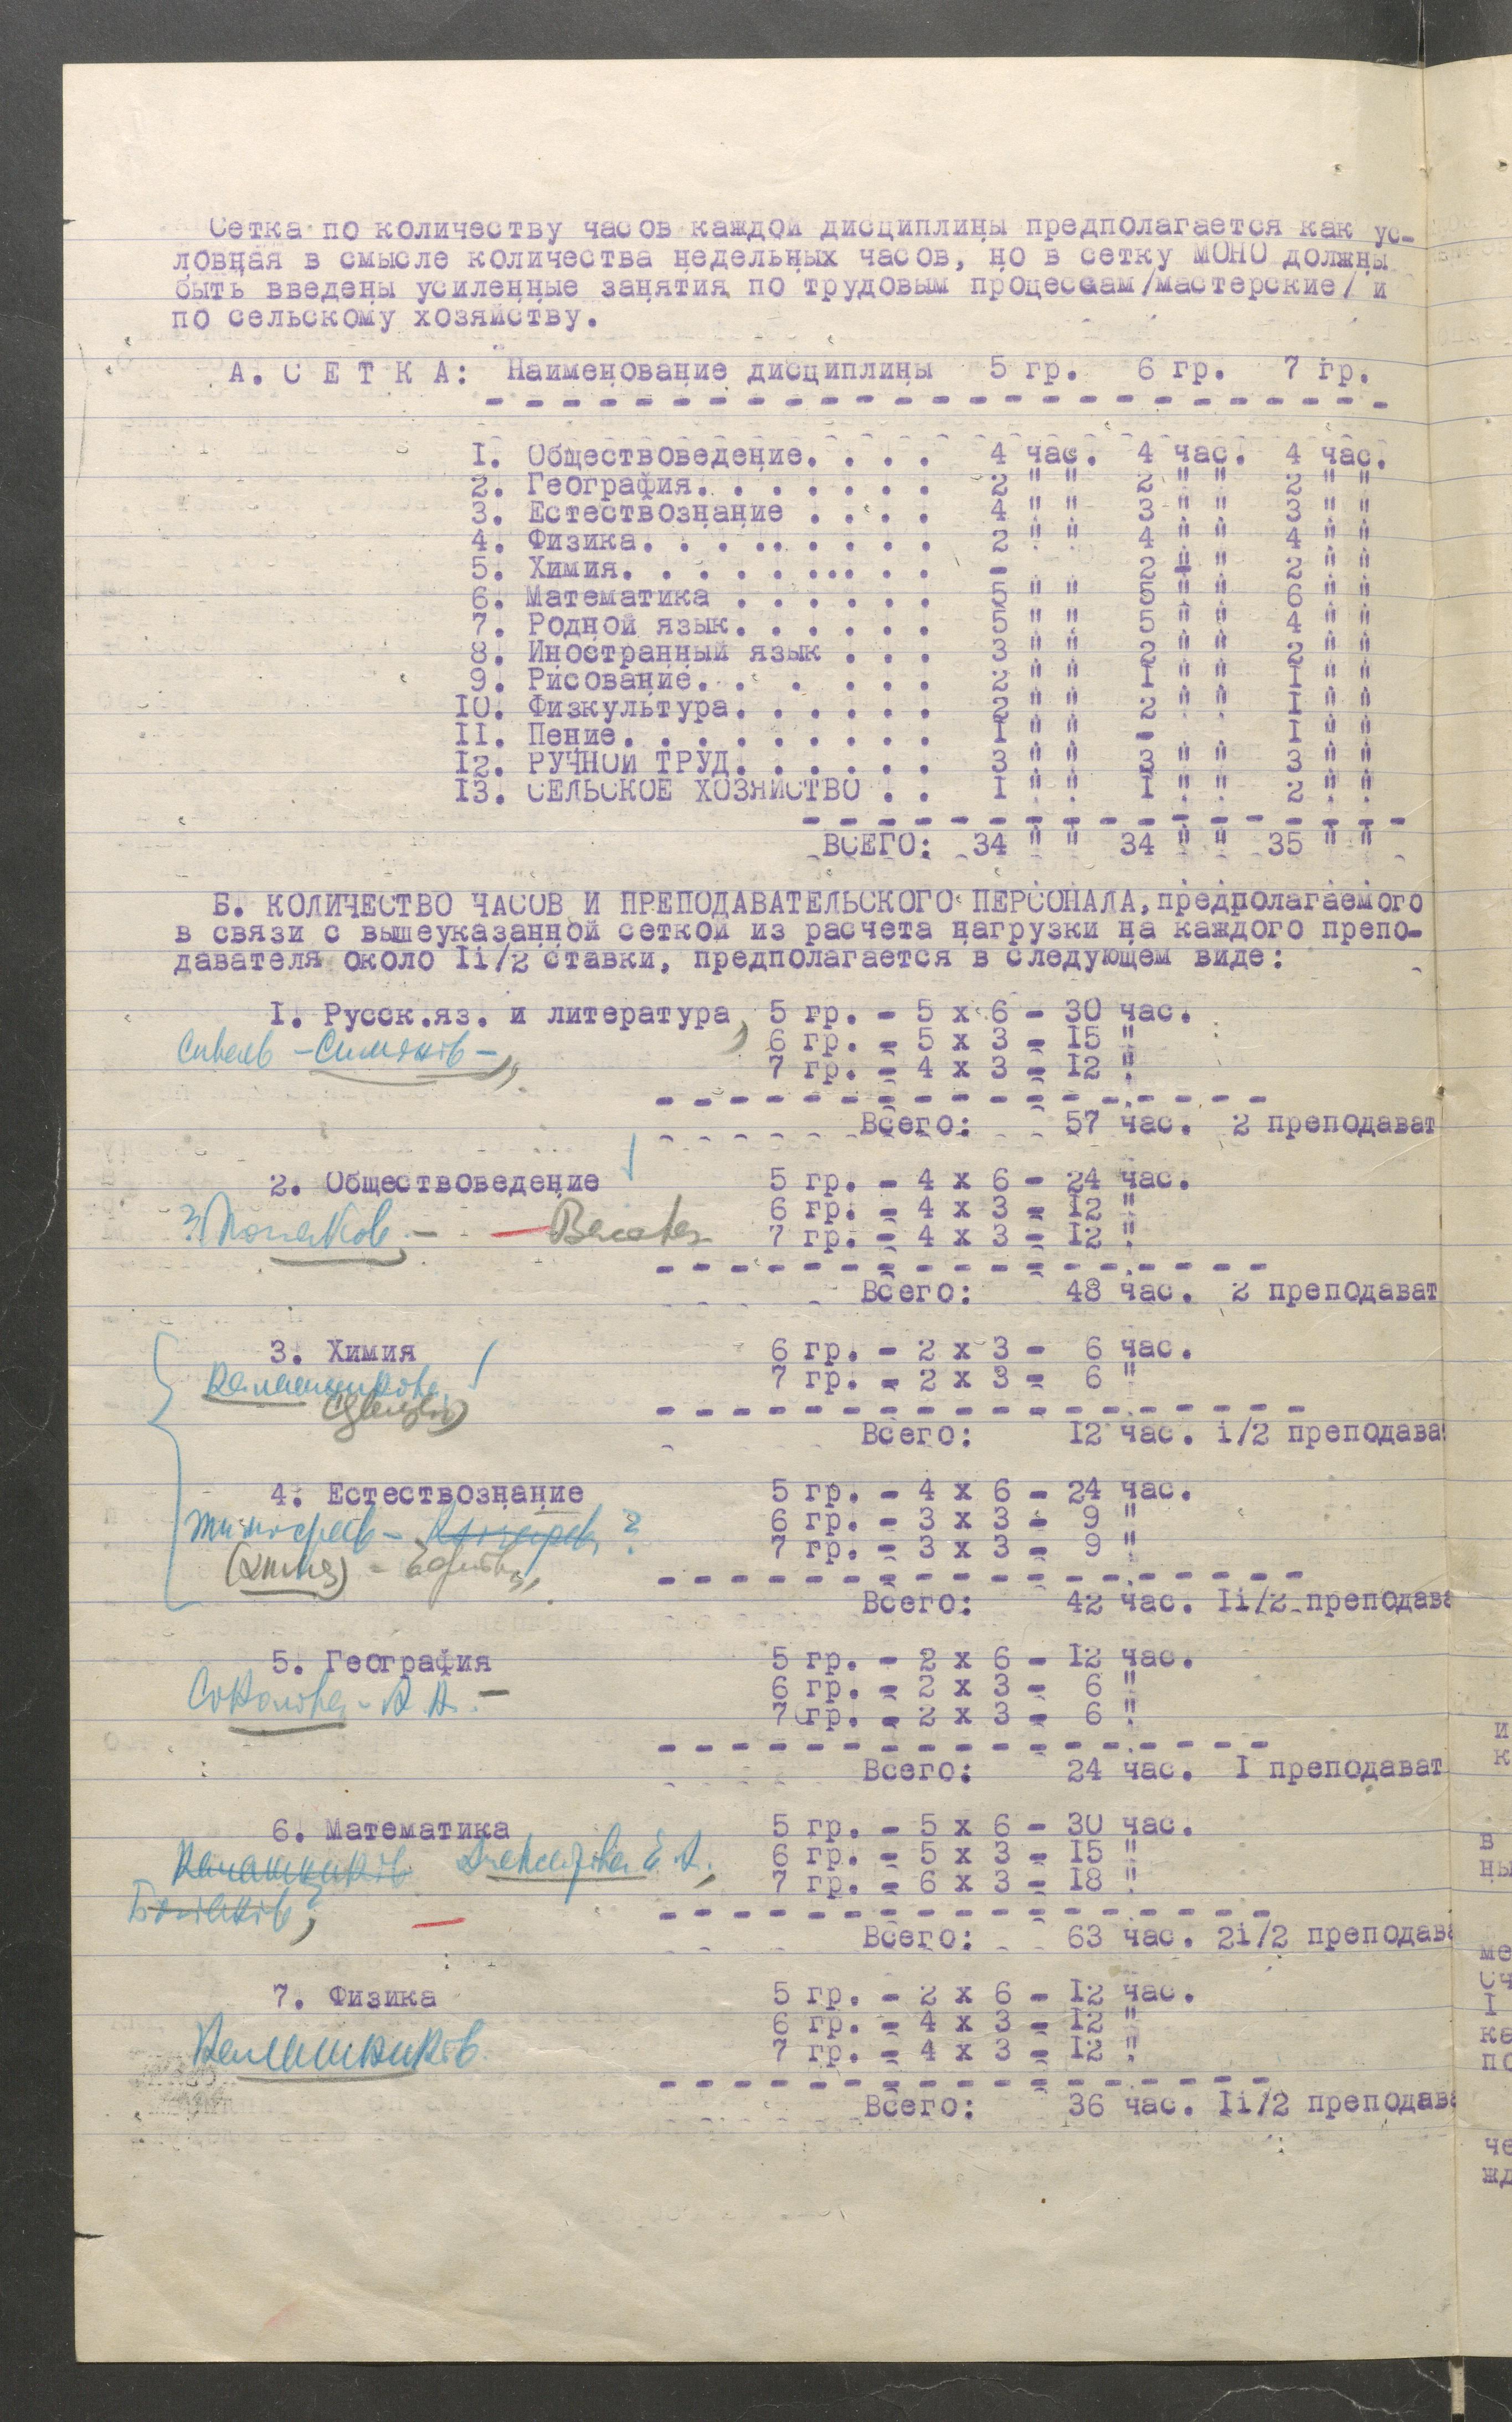 Сетка по количеству часов каждой дисциплины предполагается как ус-
ловная в смысле количества недельных часов, но в сетку МОНО должны
быть введены усиленные занятия по трудовым процессам/мастерские/ и
по сельскому хозяйству.
А. С Е Т К А: Наименование дисциплины 5 гр. 6 гр. 7 гр.
I. Обществоведение. . . . 4 час. 4 час. 4 час.
2. География. . . . . . . 2 " " 2 " " 2 " "
3. Естествознание . . . . 4 " " 3 " " 3 " "
4. Физика. . . . .. . . . . 2 " " 4 " " 4 " "
5. Химия. . . . . . ... . . - 2 " " 2 " "
6. Математика . . . . . . 5 " " 5 " " 6 " "
7. Родной язык. . . . . . 5 " " 5 " " 4 " "
8. Иностранный язык . . . 3 " " 2 " " 2 " "
9. Рисование. . . . . . 2 " " I " " I " "
IO. Физкультура. . . . . . 2 " " 2 " " I " "
II. Пение. . . . . . . . . I " " - I " "
I2. РУЧНОЙ ТРУД. . . . . . 3 " " 3 " " 3 " "
I3. СЕЛЬСКОЕ ХОЗЯЙСТВО . . I " " I " " 2 " "
ВСЕГО: 34 " " 34 " " 35 " "
Б. КОЛИЧЕСТВО ЧАСОВ И ПРЕПОДАВАТЕЛЬСКОГО ПЕРСОНАЛА, предполагаемого
в связи с вышеуказанной сеткой из расчета нагрузки на каждого препо-
давателя около Ii/2 ставки, предполагается в следующем виде:
I. Русск.яз. и литература 5 гр. - 5 х 6 - 30 час.
6 гр. - 5 х 3 - I5 "
7 гр. - 4 х 3 - I2 "
Всего: 57 час. 2 преподават
2. Обществоведение 5 гр. - 4 х 6 - 24 час.
6 гр. - 4 х 3 - I2 "
7 гр. - 4 х 3 - I2 "
Всего: 48 час. 2 преподават
3. Химия 6 гр. - 2 х 3 - 6 час.
Калашникова 7 гр. - 2 х 3 - 6 "
Всего: I2 час. i/2 преподава
4. Естествознание 5 гр. - 4 х 6 - 24 час.
6 гр. - 3 х 3 - 9 "
(химия) 7 гр. - 3 х 3 - 9 "
Всего: 42 час. Ii/2 преподава
5. География 5 гр. - 2 х 6 - I2 час.
Соколова - А. А. - 6 гр. - 2 х 3 - 6 "
7 гр. - 2 х 3 - 6 "
Всего: 24 час. I преподават
6. Математика 5 гр. - 5 х 6 - 30 час.
Калашников 6 гр. - 5 х 3 - I5 "
7 гр. - 6 х 3 - I8 "
Всего: 63 час. 2i/2 преподава
7. Физика 5 гр. - 2 х 6 - I2 час.
Калашников. 6 гр. - 4 х 3 - I2 "
7 гр. - 4 х 3 - I2 "
Всего: 36 час. Ii/2 преподава